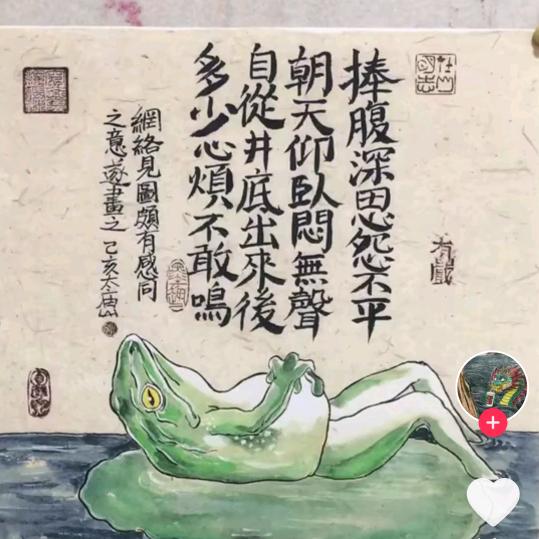 捧腹深思怨不平
朝天仰臥悶無聲
自從井底出來後
多少心煩不敢鳴
網絡見圖頗有感同
之意遂畫之 己亥